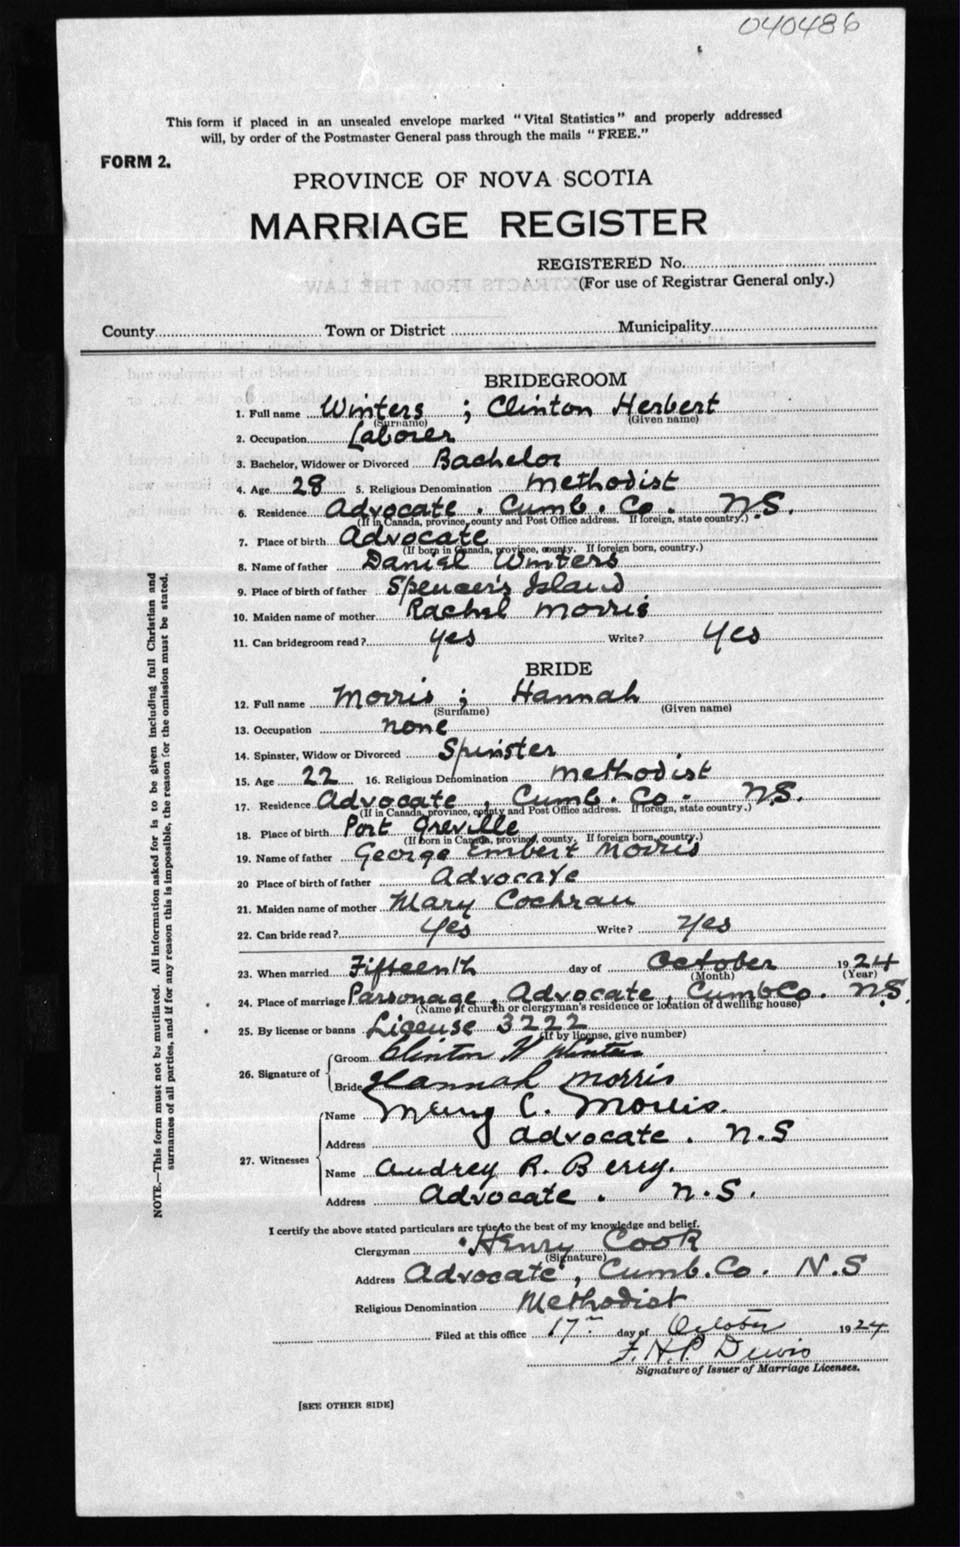 040486
This form if placed in an unsealed envelope marked "Vital Statistics" and properly addressed
will, by order of the Postmaster General pass through the mails "FREE."
FORM 2.
PROVINCE OF NOVA SCOTIA
MARRIAGE REGISTER
REGISTERED No.
(For use of Registrar General only.)
County Town or District Municipality
BRIDEGROOM
1. Full name Winters ; Clinton Herbert
(Surname) (Given name)
2. Occupation Laborer
3. Bachelor, Widower or Divorced Bachelor
4. Age 28 5. Religious Denomination Methodist
6. Residence Advocate . Cumb. Co. N.S.
(If in Canada, province, county and Post Office address. If foreign, state country.)
7. Place of birth Advocate
(If born in Canada, province, county. If foreign born, country.)
8. Name of father Daniel Winters
9. Place of birth of father Spencer's Island
10. Maiden name of mother Rachel Morris
11. Can bridegroom read? yes Write? Yes
BRIDE
12. Full name Morris ; Hannah
(Surname) (Given name)
13. Occupation none
14. Spinster, Widow or Divorced Spinster
15. Age 22 16. Religious Denomination Methodist
17. Residence Advocate , Cumb. Co. N.S.
(If in Canada, province, county and Post Office address. If foreign, state country.)
18. Place of birth Port Greville
(If born in Canada, province, county. If foreign born, country.)
19. Name of father George Embert Morris
20 Place of birth of father Advocate
21. Maiden name of mother Mary Cochran
22. Can bride read? Yes Write? Yes
23. When married Fifteenth day of October 1924
(Month) (Year)
24. Place of marriage Parsonage , Advocate , Cumb Co. N.S.
(Name of church or clergyman's residence or location of dwelling house)
25. By license or banns License 3222
(If by license, give number)
26. Signature of
Groom Clinton H Winters
Bride Hannah Morris
27. Witnesses
Name Mary C. Morris.
Address Advocate . N.S
Name Audrey R. Berry.
Address Advocate . N.S.
I certify the above stated particulars are true to the best of my knowledge and belief.
Clergyman Henry Cook
(Signature)
Address Advocate , Cumb. Co. N.S
Religious Denomination Methodist
Filed at this office 17th day of October 1924
F. H. P. Dewis
Signature of Issuer of Marriage Licenses.
[SEE OTHER SIDE]
NOTE.—This form must not be mutilated. All information asked for is to be given including full Christian and
surnames of all parties, and if for any reason this is impossible, the reason for the omission must be stated.